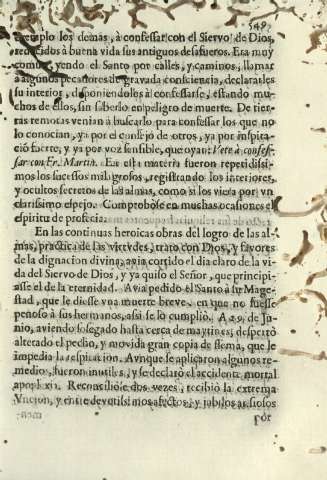 549
exemplo los demàs, à confessar con el Siervo de Dios,
reducidos à buena vida sus antiguos desafueros. Era muy
comun, yendo el Santo por calles, y caminos, llamar
à algunos pecadores de gravada consciencia, declararles
su interior, disponiendolos à confessarse, estando mu-
chos de ellos, sin saberlo en peligro de muerte. De tier-
ras remotas venian à buscarlo para confessar los que no
lo conocian, ya por el consejo de otros, ya por inspira-
ciõ fuerte, y ya por voz sensible, que oyan: Vete à confes-
sar con Fr. Martin. En esta materia fueron repetidissi-
mos los sucessos milagrosos, registrando los interiores,
y ocultos secretos de las almas, como si los viera por vn
clarissimo espejo. Comprobòse en muchas ocasiones el
espiritu de profecia.
En las continuas heroicas obras del logro de las al-
mas, practica de las virtudes, trato con Dios, y favores
de la dignacion divina, avia corrido el dia claro de la vi-
da del Siervo de Dios, y ya quiso el Señor, que principi-
asse el de la eternidad. Avia pedido el Santo à su Mage-
stad, que le diesse vna muerte breve, en que no fuesse
penoso à sus hermanos, assi se lo cumpliò. A 29. de Ju-
nio, aviendo sosegado hasta cerca de maytines; despertò
alterado el pecho, y movida gran copia de flema, que le
impedia la respiracion. Aunque se aplicaron algunos re-
medios, fueron inutiles, y se declarò el accidente mortal
apoplexia. Reconciliòse dos vezes, recibiò la extrema
Vncion, y entre devotissimos afectos, y jubilos ansiosos
por